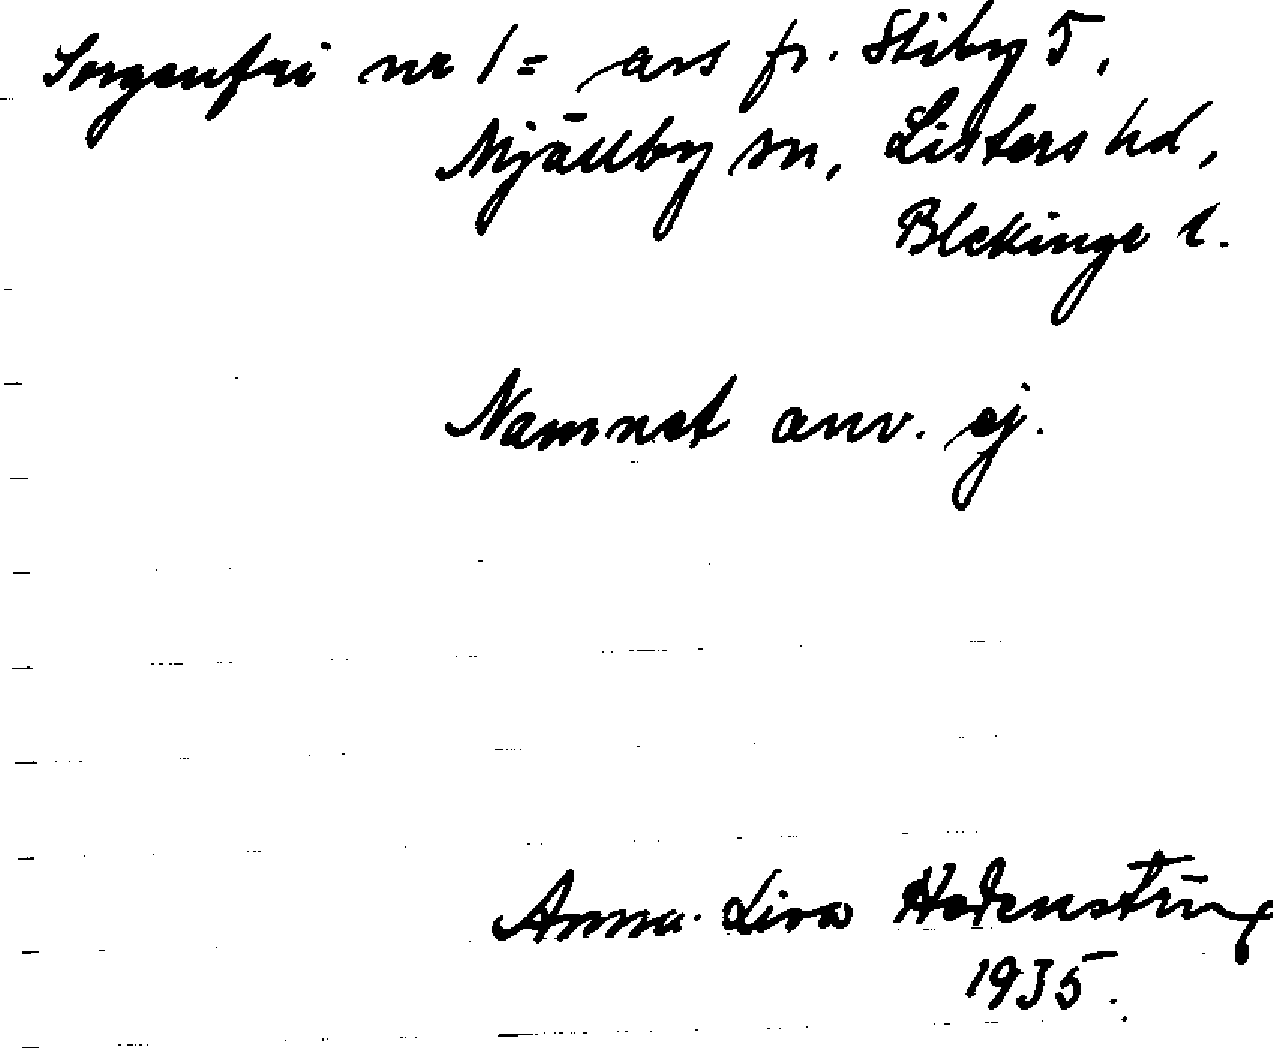 Sorgenfri nr 1 = avs fr. Stiby 5,
Mjällby sn, Listers hd,
Blekinge l.
Namnet anv. ej.
Anna-Lisa Hedenstüng
1935.